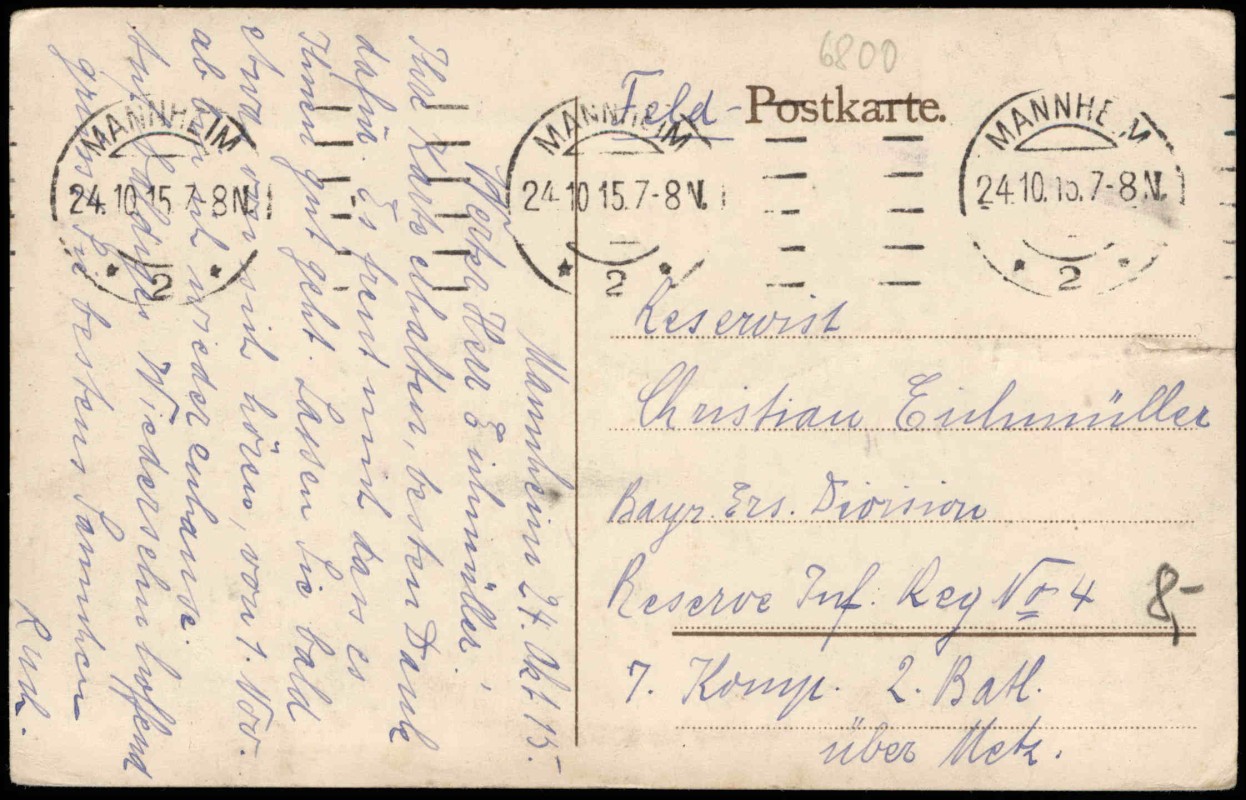 6800
Feld-Postkarte.
MANNHEIM
24.10.15.7-8N.
* 2 *
MANNHEIM
24.10.15.7-8N.
* 2 *
MANNHEIM
24.10.15.7-8N.
* 2 *
Mannheim 24. Okt. 15.
Werter Herr Eichmüller,
Ihre Karte erhalten, besten Dank
dafür. Es freut mich dass es
Ihnen gut geht. Lassen Sie bald
etwas von sich hören, von 1. Nov.
ab bin ich wieder zuhause.
Auf baldiges Wiedersehn hoffend
grüsst Sie bestens
Reservist
Christian Eichmüller
Bayr. Ers. Division
Reserve Inf. Reg No 4
7. Komp. 2. Batl.
über Metz.
8,-